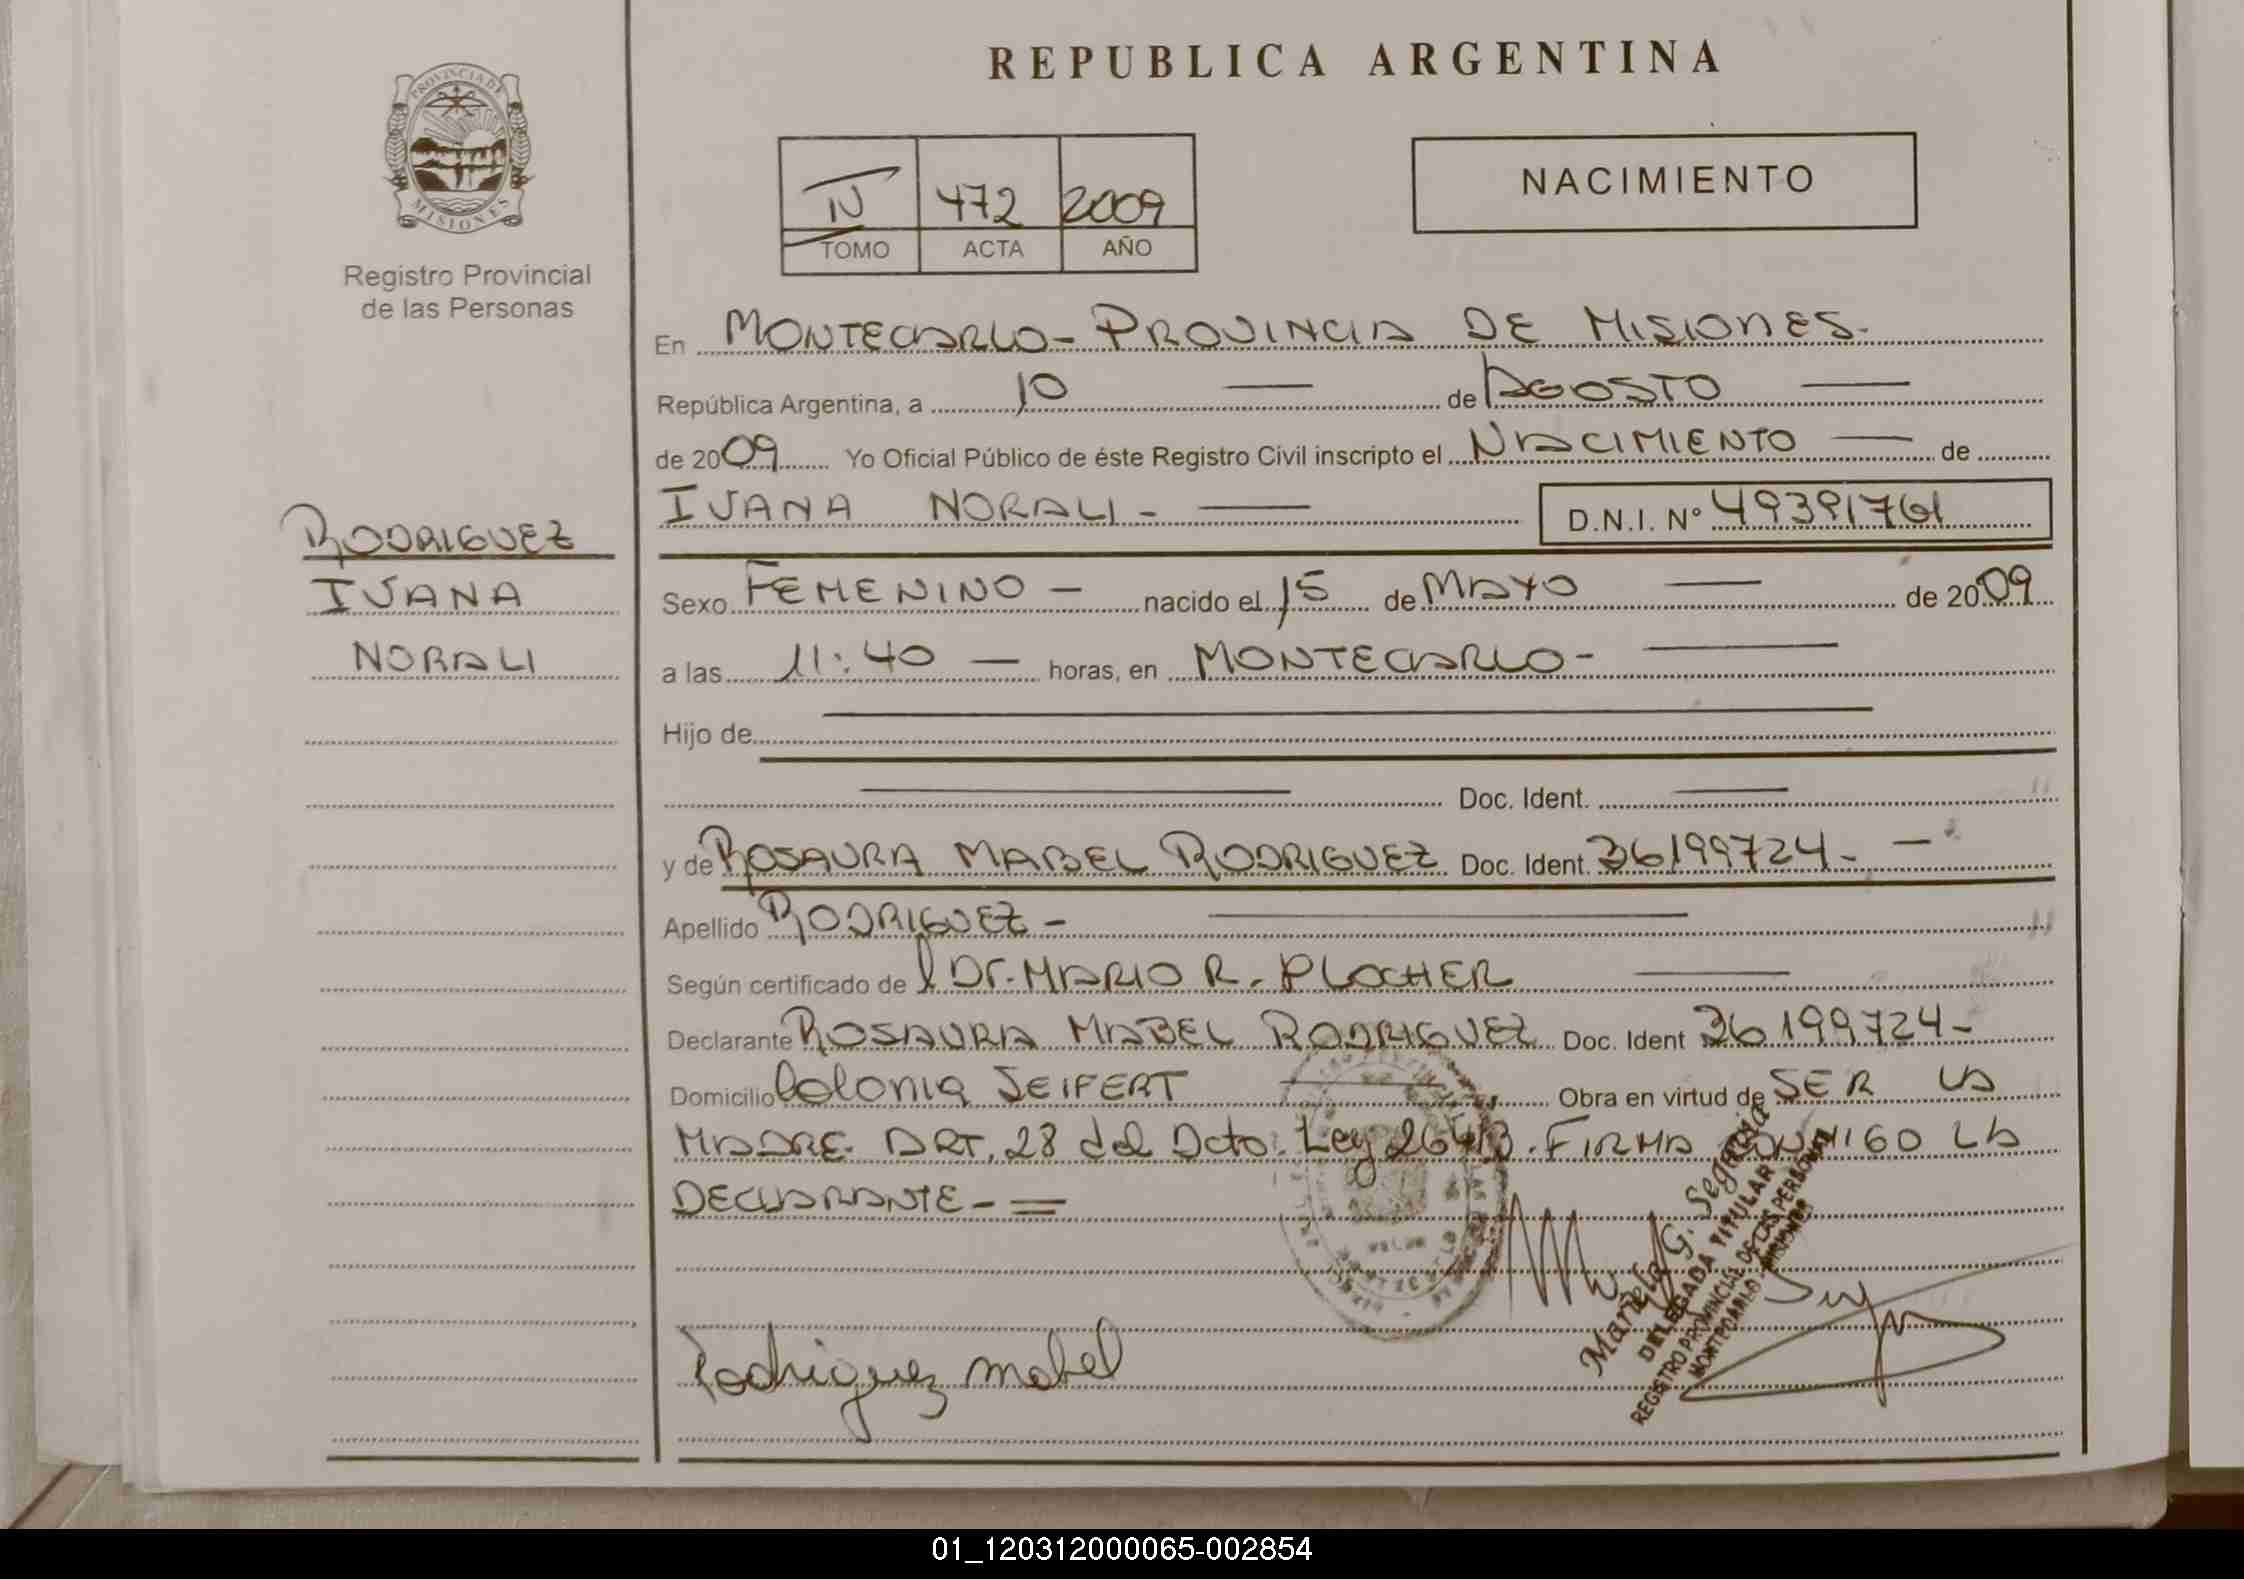 REPUBLICA ARGENTINA
PROVINCIA DE
MISIONES
Registro Provincial
de las Personas
IV 472 2009
TOMO ACTA AÑO
NACIMIENTO
En MONTECARLO- PROVINCIA DE MISIONES-
República Argentina, a 10 — de AGOSTO —
de 2009 Yo Oficial Público de éste Registro Civil inscripto el NACIMIENTO — de
IVANA NORALI- — D.N.I. N° 49391761
RODRIGUEZ
IVANA
NORALI
Sexo FEMENINO — nacido el 15 de MAYO — de 2009
a las 11:40 — horas, en MONTECARLO- —
Hijo de —
— Doc. Ident. —
y de ROSAURA MABEL RODRIGUEZ Doc. Ident. 36199724- —
Apellido RODRIGUEZ- —
Según certificado de l Dr. MARIO R. PLOCHER —
Declarante ROSAURA MABEL RODRIGUEZ Doc. Ident 36199724-
Domicilio Colonia SEIFERT — Obra en virtud de SER LA
MADRE- ART. 28 del Dcto. Ley 26413. FIRMA CONMIGO LA
DECLARANTE- =
Rodriguez Mabel
Mariela G. Segovia
DELEGADA TITULAR
REGISTRO PROVINCIAL DE LAS PERSONAS
MONTECARLO - MISIONES
01_120312000065-002854